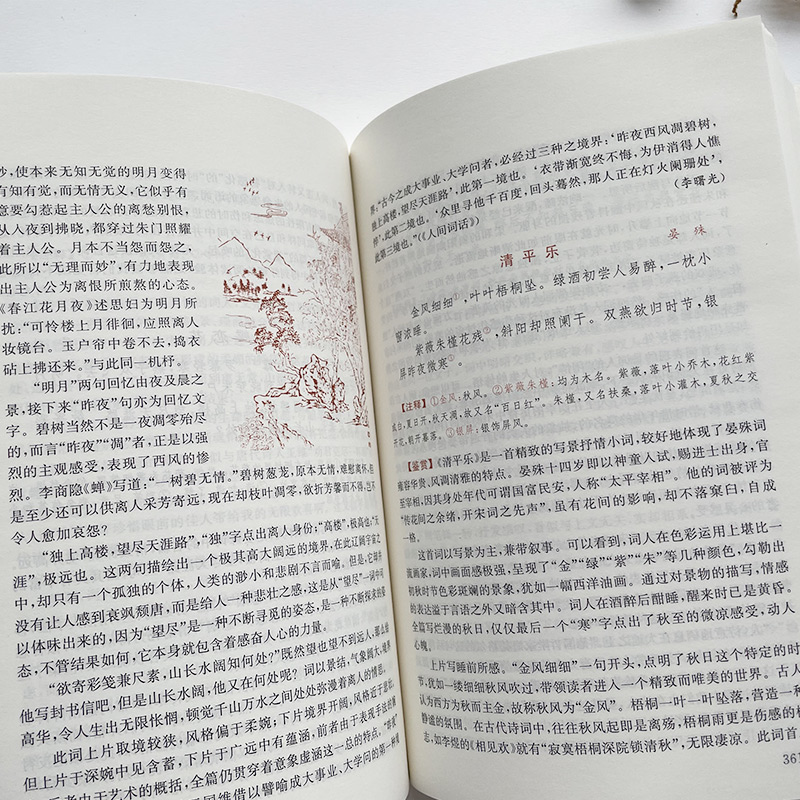 妙，使本来无知无觉的明月变得
有知有觉，而无情无义，它似乎有
意要勾惹起主人公的离愁别恨，
从入夜到拂晓，都穿过朱门照耀
着主人公。月本不当怨而怨之，
此所以“无理而妙”，有力地表现
出主人公为离恨所煎熬的心态。
《春江花月夜》述思妇为明月所
扰：“可怜楼上月徘徊，应照离人
妆镜台。玉户帘中卷不去，捣衣
砧上拂还来。”与此同一机杼。
“明月”两句回忆由夜及晨之
景，接下来“昨夜”句亦为回忆文
字。碧树当然不是一夜凋零殆尽
的，而言“昨夜”“凋”者，正是以强
烈的主观感受，表现了西风的惨
烈。李商隐《蝉》写道：“一树碧无情。”碧树葱茏，原本无情，难慰离怀，但
是至少还可以供离人采芳寄远，现在却枝叶凋零，欲折芳馨而不得，岂不
令人愈加哀怨？
“独上高楼，望尽天涯路”，“独”字点出离人身份；“高楼”，极高也；“天
涯”，极远也。这两句描绘出一个极其高大阔远的境界，在此辽阔宇宙之
中，却只有一个孤独的个体，人类的渺小和悲剧不言而喻。但是，它咔并
没有让人感到衰飒颓唐，而是给人一种悲壮之感，这是从“望尽”一词中可
以体味出来的，因为“望尽”是一种不断寻觅的姿态，是一种不断探求的姿
态，不管结果如何，它本身就包含着感奋人心的力量。
“欲寄彩笺兼尺素，山长水阔知何处？”既然望也望不到远人，那么给
他写封书信吧，但是山长水阔，他又在何处呢？词以景结，气象阔大，境界
高华，令人生出无限怅惘，顿觉千山万水之间处处弥漫着离人的情思。
此词上片取境较狭，风格偏于柔婉；下片境界开阔，风格近于悲壮。
但上片于深婉中见含蓄，下片于广远中有蕴涵，前者由于表现手法的
全篇仍贯穿着意象虚涵这一总的特点。
国维借以譬喻成大事业、大学问的第一种境
界：“古今之成大事业、大学问者，必经过三种之境界：‘昨夜西风凋碧树，
独上高楼，望尽天涯路’，此第一境也。‘衣带渐宽终不悔，为伊消得人憔
悴’，此第二境也。‘众里寻他千百度，回头蓦然，那人正在灯火阑珊处’，
此第三境也。”（《人间词话》）
（李曙光）
清平乐
晏殊
金风细细①，叶叶梧桐坠。绿酒初尝人易醉，一枕小
窗浓睡。
紫薇朱槿花残②，斜阳却照阑干。双燕欲归时节，银
屏昨夜微寒③。
【注释】①金风：秋风。②紫薇朱槿：均为木名。紫薇，落叶小乔木，花红紫
或白，夏日开，秋天凋，故又名“百日红”。朱槿，又名扶桑，落叶小灌木，夏秋之交
开花，朝开暮落。③银屏：银饰屏风。
【鉴赏】《清平乐》是一首精致的写景抒情小词，较好地体现了晏殊词
雍容华贵、风调清雅的特点。晏殊十四岁即以神童入试，赐进士出身，官
至宰相，因其身处年代可谓国富民安，人称“太平宰相”。他的词被评为
“传花间之余绪，开宋词之先声”，虽有花间的影响，却不落窠臼，自成
一格。
这首词以写景为主，兼带叙事。可以看到，词人在色彩运用上堪比一
流画家，词中画面感极强，呈现了“金”“绿”“紫”“朱”等几种颜色，勾勒出
初秋时节色彩斑斓的景象，犹如一幅西洋油画。通过对景物的描写，情感
的表达溢于言语之外又暗含其中。词人在酒醉后酣睡，醒来时已是黄昏。
全篇写烂漫的秋日，仅仅最后一个“寒”字点出了秋至的微凉感受，动人
心魄。
上片写睡前所感。“金风细细”一句开头，点明了秋日这个特定的时
节，犹如一缕细细秋风吹过，带领读者进入一个精致而唯美的世界。古人
认为西方为秋而主金，故称秋风为“金风”。梧桐一叶一叶坠落，营造一种
静谧的氛围。在古代诗词中，往往秋风起即是离殇，梧桐雨更是伤感的标
志，如李煜的《相见欢》就有“寂寞梧桐深院锁清秋”，无限凄凉。此词首
361